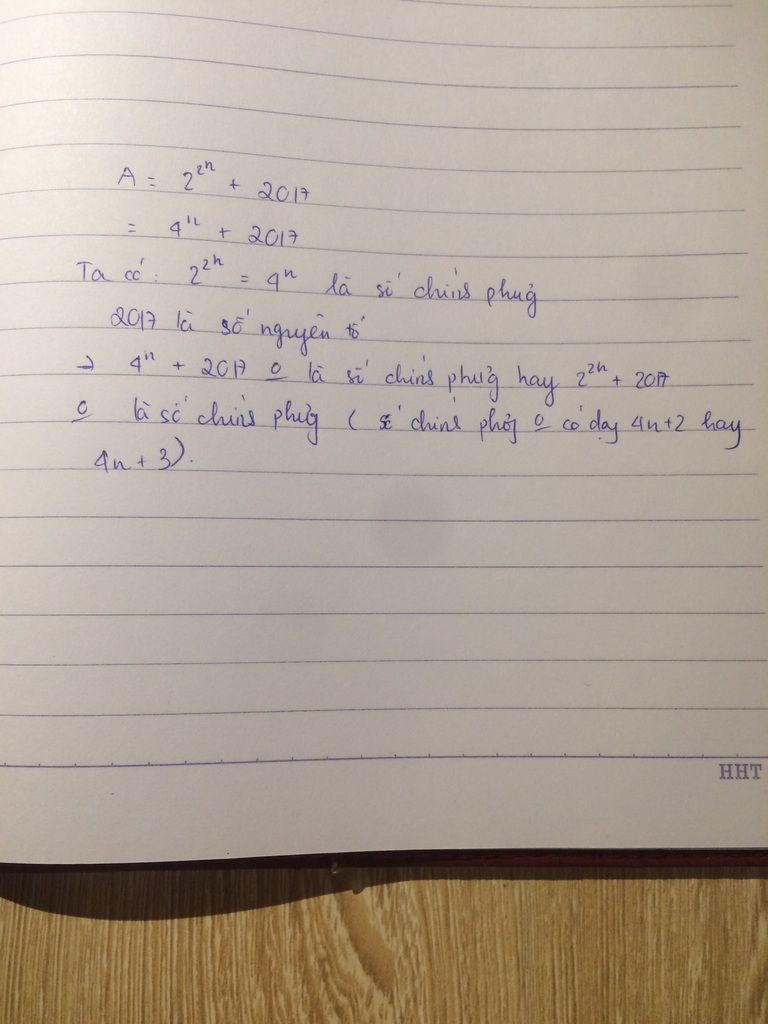 A = 2^2^n + 2017
= 4^n + 2017
Ta có: 2^2^n = 4^n là số chính phương
2017 là số nguyên tố
→ 4^n + 2017 0 là số chính phương hay 2^2^n + 2017
0 là số chính phương ( số chính phương 0 có dạng 4n+2 hay
4n + 3).
HHT